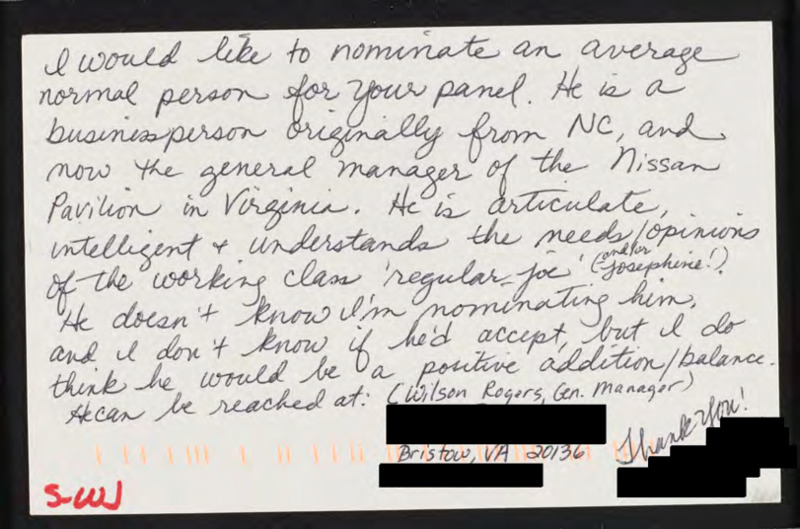 I would like to nominate an average
normal person for your panel. He is a
businessperson originally from NC, and
now the general manager of the Nissan
Pavilion in Virginia. He is articulate,
intelligent + understands the needs/opinions
of the working class 'regular-joe' (and/or -josephine!).
He doesn't know I'm nominating him,
and I don't know if he'd accept, but I do
think he would be a positive addition/balance.
He can be reached at: (Wilson Rogers, Gen. Manager)
Bristow, VA 20136
Thank You!
S-W